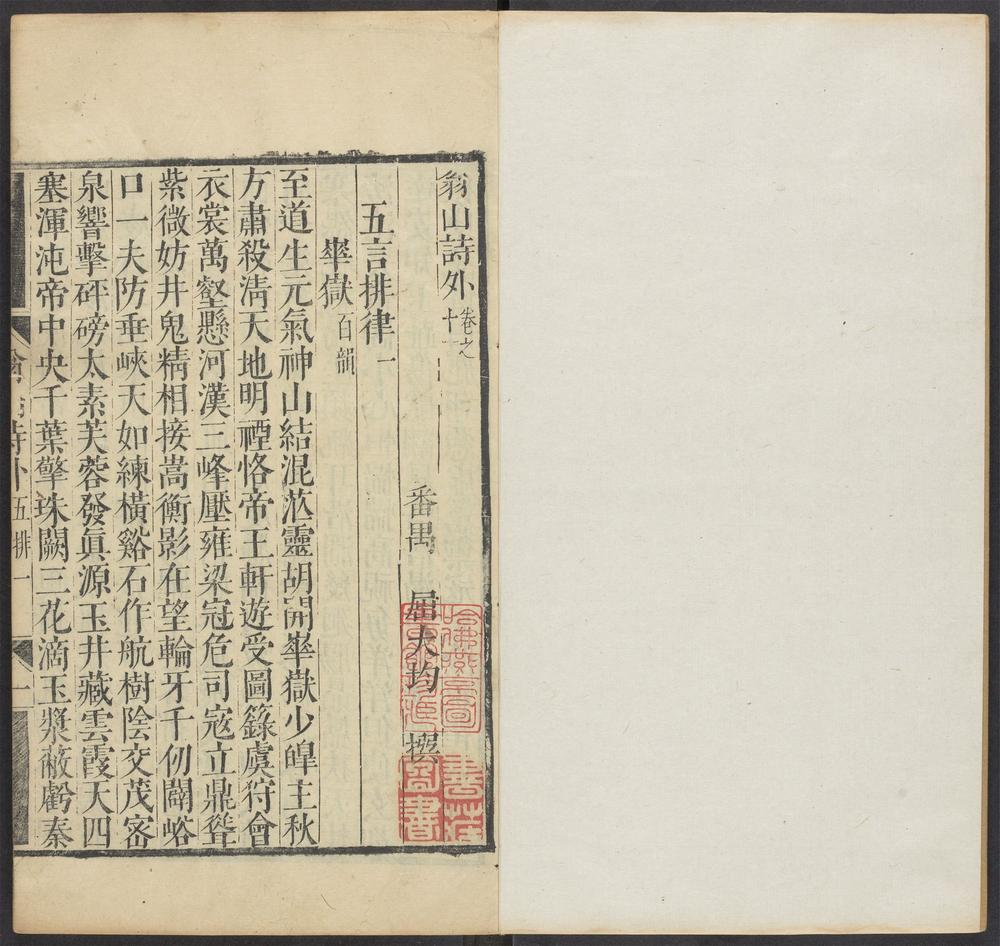 翁山詩外 卷之十一
番禺 屈大均 撰
哈佛燕京圖
書館珍藏印
五言排律一
崋獄百韻
至道生元氣神山結混茫靈胡開崋獄少皥主秋
方肅殺淸天地明禋恪帝王軒遊受圖籙虞狩會
衣裳萬壑懸河漢三峰壓雍梁冠危司寇立鼎聳
紫微妨井鬼精相接嵩衡影在望輪牙千仞闢峪
口一夫防垂峽天如練橫谿石作航樹陰交茂宻
泉響擊砰磅太素芙蓉發眞源玉井藏雲霞天四
塞渾沌帝中央千葉擎珠闕三花滴玉漿蔽虧秦
翁山詩外 五排一 一